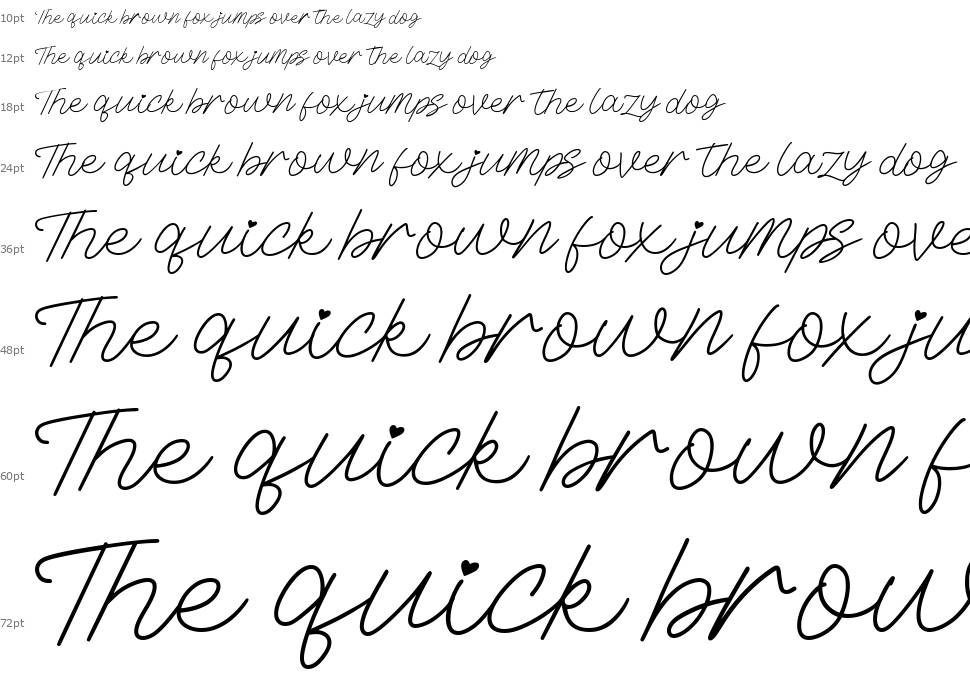 10pt The quick brown fox jumps over the lazy dog
12pt The quick brown fox jumps over the lazy dog
18pt The quick brown fox jumps over the lazy dog
24pt The quick brown fox jumps over the lazy dog
36pt The quick brown fox jumps ove
48pt The quick brown fox ju
60pt The quick brown f
72pt The quick brow